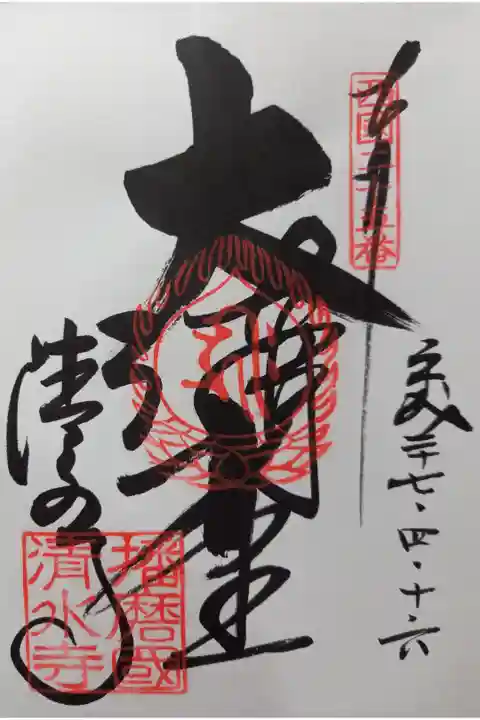 奉拝
西國二十五番
平成二十七・四・十六
大講堂
清水寺
播磨國
清水寺